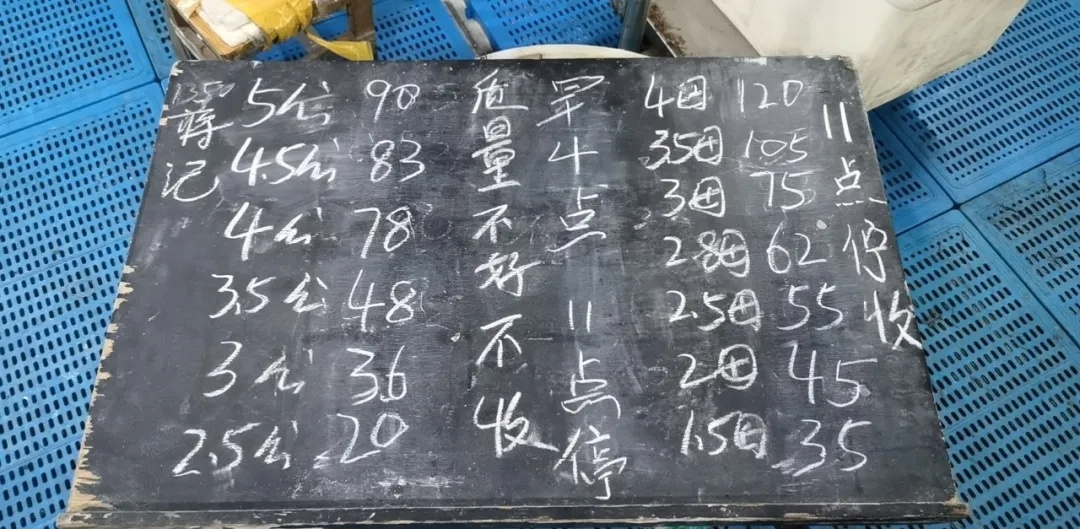 蒋记
5公 90
4.5公 83
4公 78
3.5公 48
3公 36
2.5公 20
质量不好不收
早十点 11点停
4母 120
3.5母 105
3母 75
2.8母 62
2.5母 55
2母 45
1.5母 35
11点停收